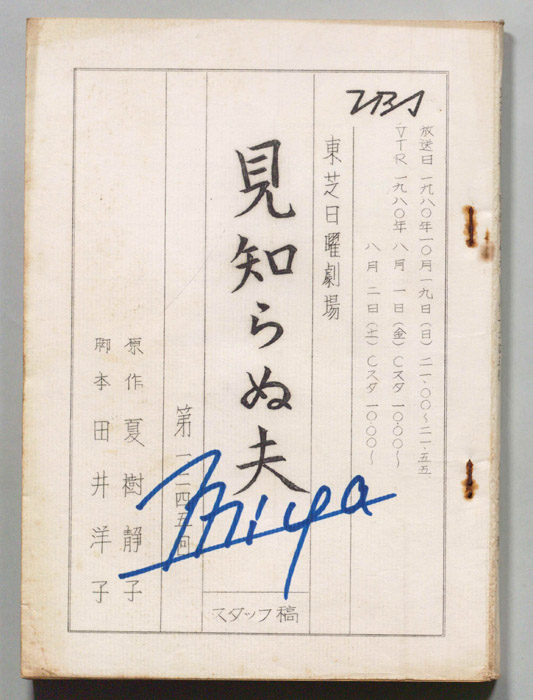 TBS
放送日 一九八〇年一〇月一九日(日) 二一・〇〇～二一・五五
VTR 一九八〇年 八月 一日(金) Cスタ 一〇・〇〇～
八月 二日(土) Cスタ 一〇・〇〇～
東芝日曜劇場
見知らぬ夫
第一二四五回
スタッフ稿
原作 夏樹静子
脚本 田井洋子
Miya